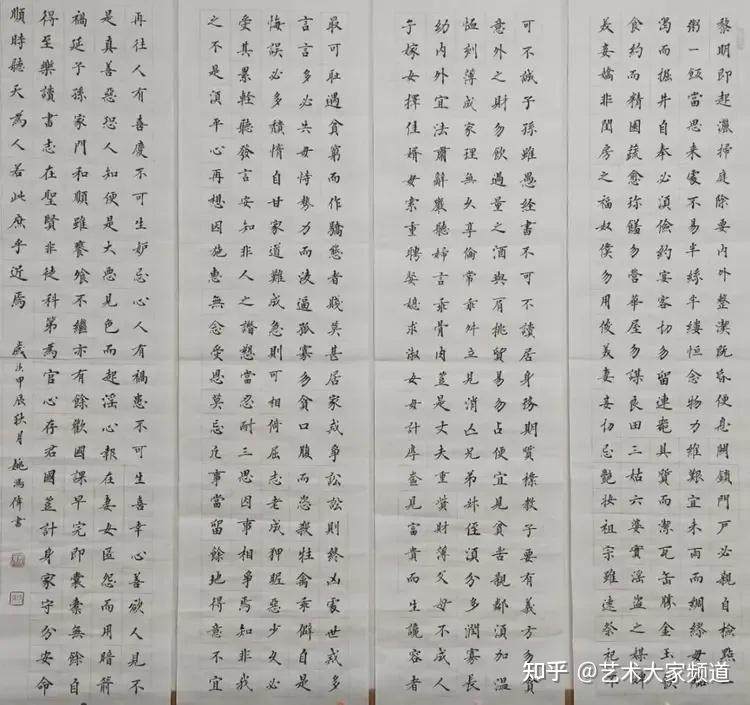 黎明即起灑掃庭除要內外整潔既昏便息關鎖門戶必親自檢點一
粥一飯當思來處不易半絲半縷恒念物力維艱宜未雨而綢繆毋臨
渴而掘井自奉必須儉約宴客切勿留連器具質而潔瓦缶勝金玉飲
食約而精園蔬愈珍饈勿營華屋勿謀良田三姑六婆實淫盜之媒婢
美妾嬌非閨房之福奴僕勿用俊美妻妾切忌艷妝祖宗雖遠祭祀不
可不誠子孫雖愚經書不可不讀居身務期質樸教子要有義方勿貪
意外之財勿飲過量之酒與肩挑貿易勿占便宜見貧苦親鄰須加溫
恤刻薄成家理無久享倫常乖舛立見消亡兄弟叔侄須分多潤寡長
幼內外宜法肅辭嚴聽婦言乖骨肉豈是丈夫重貲財薄父母不成人
子嫁女擇佳婿毋索重聘娶媳求淑女毋計厚奩見富貴而生諂容者
最可恥遇貧窮而作驕態者賤莫甚居家戒爭訟訟則終凶處世戒多
言言多必失毋恃勢力而凌逼孤寡勿貪口腹而恣殺牲禽乖僻自是
悔誤必多頹惰自甘家道難成急則可相倚屈志老成狎暱惡少久必
受其累輕聽發言安知非人之譖愬當忍耐三思因事相爭焉知非我
之不是須平心再想因施惠無念受恩莫忘凡事當留餘地得意不宜
再往人有喜慶不可生妒忌心人有禍患不可生喜幸心善欲人見不
是真善惡恐人知便是大惡見色而起淫心報在妻女匿怨而用暗箭
禍延子孫家門和順雖饔飧不繼亦有餘歡國課早完即囊橐無餘自
得至樂讀書志在聖賢非徒科第為官心存君國豈計身家守分安命
順時聽天為人若此庶乎近焉 歲次甲辰秋月姚馮偉書
知乎 @艺术大家频道